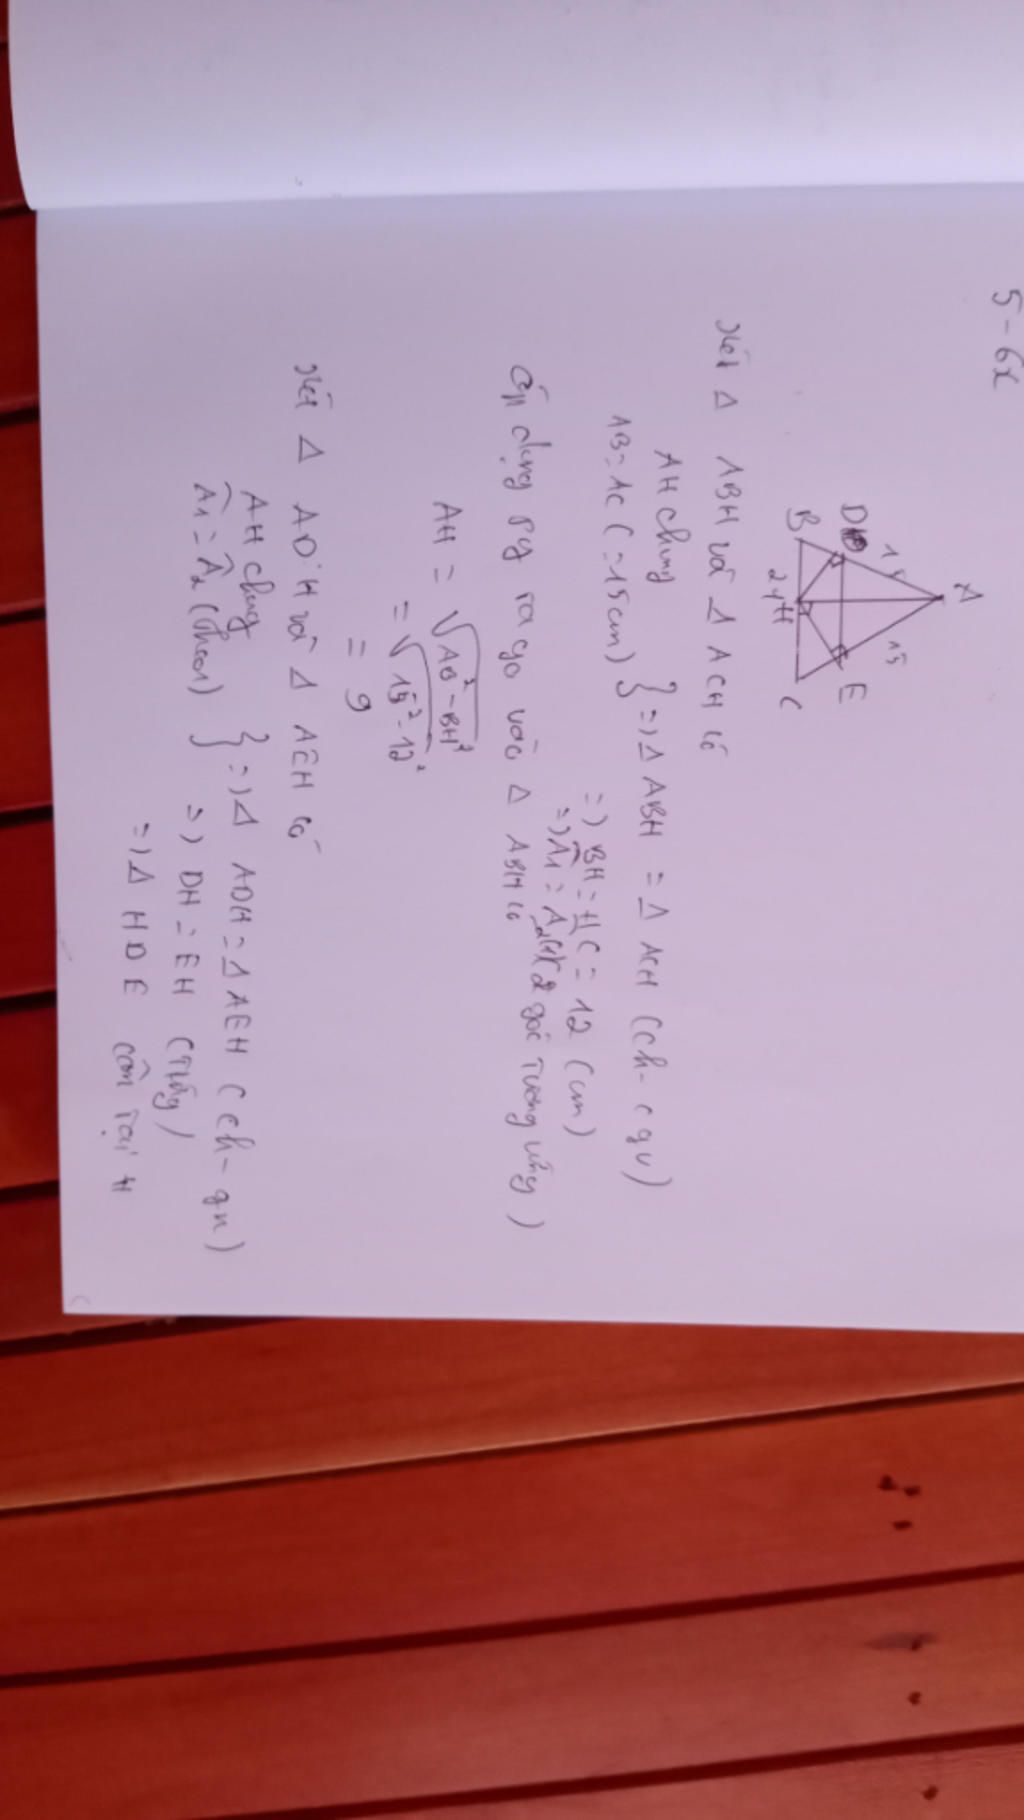 5-6x
A
15
15
D
E
B
24
H
C
Xét Δ ABH và Δ ACH có
AH chung
AB = AC (=15cm) } => Δ ABH = Δ ACH (ch-cgv)
=> BH = HC = 12 (cm)
=> Â1 = Â2 (2 góc tương ứng)
dụng py ta go vào Δ ABH có
AH = √AB² - BH²
= √15² - 12²
= 9
Xét Δ ADH và Δ AEH có
AH chung
Â1 = Â2 } => Δ ADH = Δ AEH (ch-gn)
=> DH = EH
=> Δ HDE cân tại H